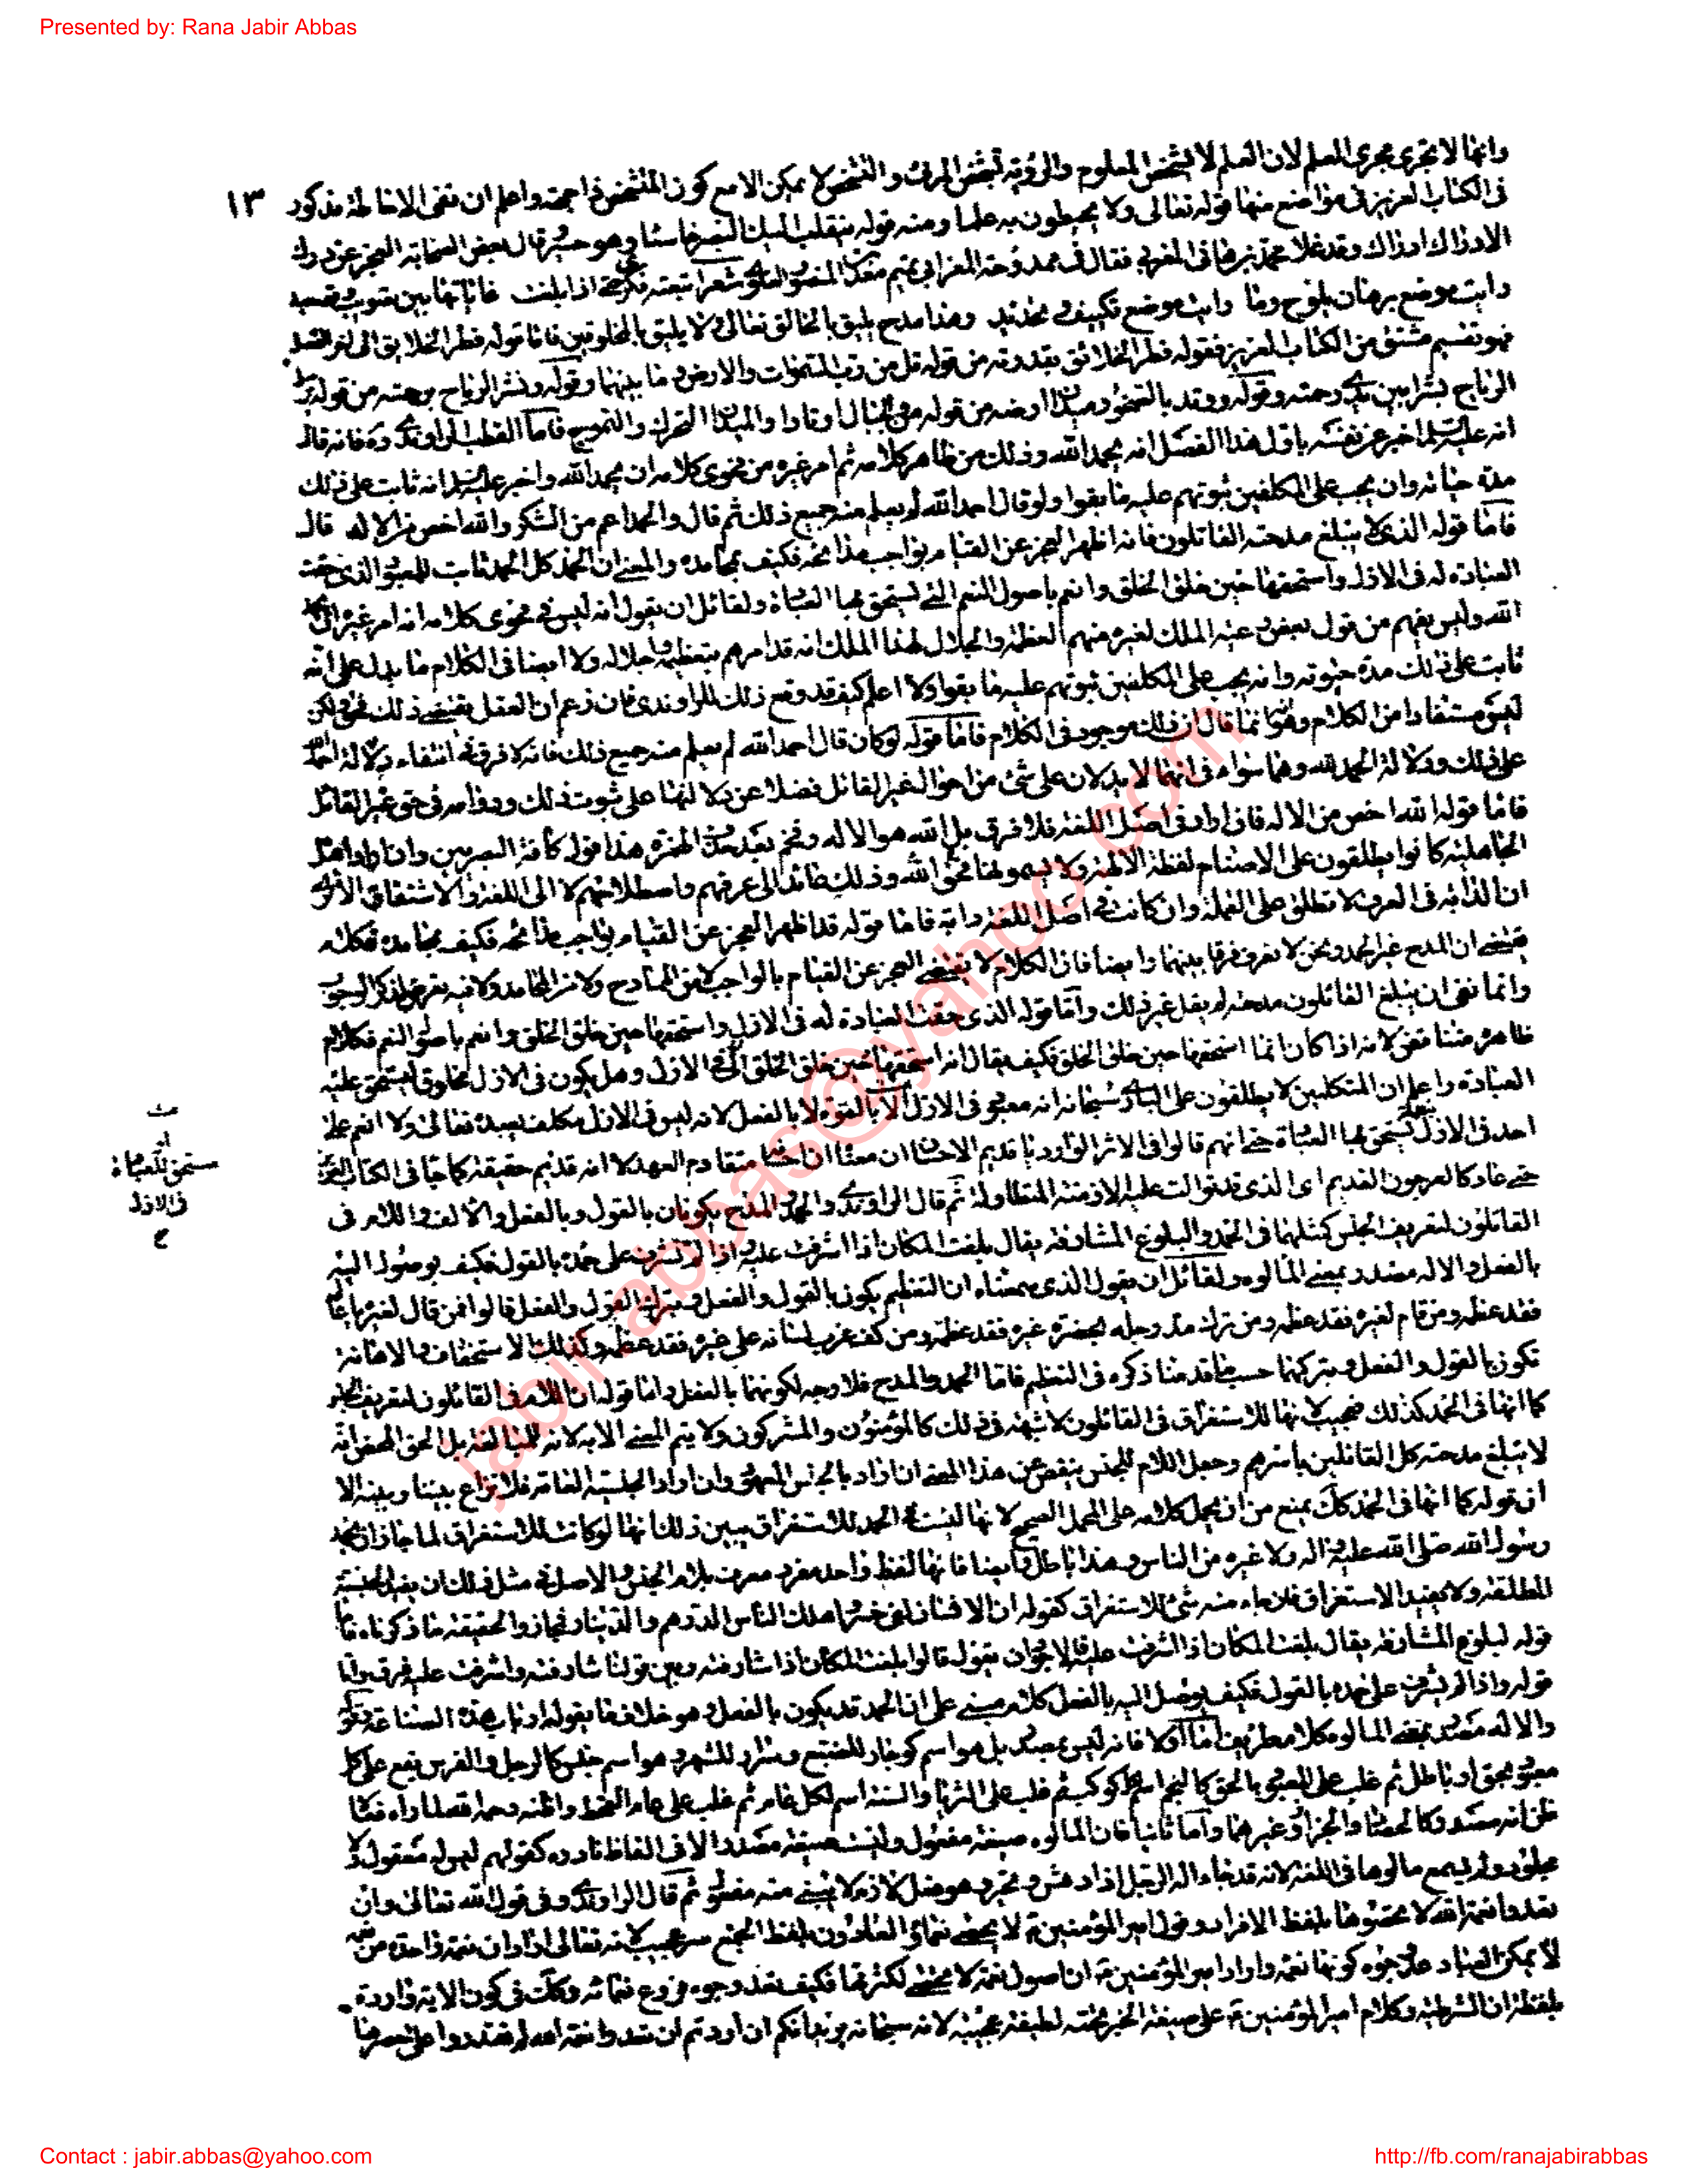 Presented by: Rana Jabir Abbas
١٣
وانها لا تجرى مجرى العلم لان العلم لا يشخص المعلوم والرؤية تشخص المرئى والتشخص لا يمكن الا مع كون المتشخص ذا جهة واعلم ان نفى الاحاطة مذكور
فى الكتاب العزيز فى مواضع منها قوله تعالى ولا يحيطون به علما ومنه قوله ينقلب اليك البصر خاسئا وهو حسير قال بعض الصحابة العجز عن درك
الادراك ادراك وقد غلا محمد بن هانى المغربى فقال فى ممدوحه المعز ابى تميم معد بن المنصور العلوى شعر اتبعته فكرى حتى اذا بلغت غاياتها بين تصويب وتصعيد
رايت موضع برهان يلوح وما رايت موضع تكييف وتحديد وهذا مدح يليق بالخالق تعالى ولا يليق بالمخلوقين فاما قوله فطر الخلايق الى اخر الفصل
فهو تقسيم مشتق من الكتاب العزيز فقوله فطر الخلائق بقدرته من قوله قل من رب السموات والارض وما بينهما وقوله ونشر الرياح برحمته من قوله يرسل
الرياح بشرا بين يدى رحمته وقوله ووتد بالصخور ميدان ارضه من قوله والجبال اوتادا والميدان التحرك والتموج فاما القطب الراوندى ره فانه قال
انه عليه السلم اخبر عن نفسه باول هذا الفصل انه يحمد الله وذلك من ظاهر كلامه ثم امر غيره من فحوى كلامه ان يحمد الله واخبر عليه السلم انه ثابت على ذلك
مدة حياته وان يجب على المكلفين ثبوتهم عليه ما بقوا ولو قال احمد الله لم يعلم منه جميع ذلك ثم قال والحمد اعم من الشكر والله اخص من الاله قال
فاما قوله الذى لا يبلغ مدحته القائلون فانه اظهر العجز عن القيام بواجب مدائحه فكيف بمحامده والمعنى ان الحمد كل الحمد ثابت للمعبود الذى حقت
العبادة له فى الازل واستحقها حين خلق الخلق وانعم باصول النعم التى يستحق بها العبادة ولقائل ان يقول انه ليس فى فحوى كلامه انه امر غيره ان يحمد
الله وليس يفهم من قول بعض عبيد الملك لغيره منهم العظمة والجلال لهذا الملك انه قد امرهم بتعظيمه واجلاله ولا ايضا فى الكلام ما يدل على انه
ثابت على ذلك مدة حيوته وانه يجب على المكلفين ثبوتهم عليه ما بقوا ولا اعلم كيف قد وقع ذلك للراوندى فان زعم ان العقل يقتضى ذلك فحق ولكن
ليس مستفادا من الكلام وهو انما قال ان ذلك موجود فى الكلام فاما قوله لو كان قال احمد الله لم يعلم منه جميع ذلك فانه لا فرق فى انتفاء دلالة احمد الله
على ذلك ودلالة الحمد لله وهما سواء فى انهما لا يدلان على شئ من احوال غير القائل فضلا عن دلالتهما على ثبوت ذلك ودوامه فى حق غير القائل
فاما قوله الله اخص من الاله فان اراد فى اصل اللغة فلا فرق بل الله هو الاله وفخم بعد حذف الهمزة هذا قول كافة البصريين وان اراد اهل
الجاهلية كانوا يطلقون على الاصنام لفظة الالهة ولا يسمونها الله فحق وذلك عائد الى عرفهم واصطلاحهم لا الى اللغة والاشتقاق الا ترى
ان الدابة فى العرف لا تطلق على القملة وان كانت فى اصل اللغة دابة فاما قوله قد اظهر العجز عن القيام بواجب مدائحه فكيف بمحامده فكلام
يقتضى ان المدح غير الحمد ونحن لا نعرف فرقا بينهما وايضا فان الكلام لا يقتضى العجز عن القيام بالواجب لا من الممادح ولا من المحامد ولا فيه تعرض لذكر الوجوب
وانما نفى ان يبلغ القائلون مدحته لم يقل غير ذلك واما قوله الذى حقت العبادة له فى الازل واستحقها حين خلق الخلق وانعم باصول النعم فكلام
ظاهره متناقض لانه اذا كان انما استحقها حين خلق الخلق فكيف يقال انه استحقها فى الازل وهل يكون فى الازل مخلوق ليستحق عليه
العبادة واعلم ان المتكلمين لا يطلقون على البارى سبحانه انه معبود فى الازل الا بالقوة لا بالفعل لانه ليس فى الازل مكلف يعبده تعالى ولا انعم على
احد فى الازل بنعمة يستحق بها العبادة حتى انهم قالوا فى الاثر الوارد يا قديم الاحسان ان معناه ان احسانه متقادم العهد لا انه قديم حقيقة كما جاء فى الكتاب العزيز
حتى عاد كالعرجون القديم اى الذى قد توالت عليه الازمنة المتطاولة ثم قال الراوندى والحمد والمدح يكونان بالقول وبالفعل والالف واللام فى
القائلون لتعريف الجنس كمثلهما فى الحمد والبلوغ المشارفة يقال بلغت المكان اذا اشرفت عليه واذا لم تشرف على حمده بالقول فكيف بوصول اليه
بالفعل والاله مصدر بمعنى المالوه ولقائل ان يقول الذى سمعناه ان التعظيم يكون بالقول والفعل وبترك القول والفعل قالوا فمن قال لغيره يا عالم
فقد عظمه ومن قام لغيره فقد عظمه ومن ترك مد رجله بحضرة غيره فقد عظمه ومن كف غرب لسانه على غيره فقد عظمه وكذلك الاستخفاف والاهانة
تكون بالقول والفعل وبتركهما حسب ما قدمنا ذكره فى التعظيم فاما الحمد والمدح فلا وجه لكونهما بالفعل واما قوله ان اللام فى القائلون لتعريف الجنس
كما انها فى الحمد كذلك فعجيب لانها للاستغراق فى القائلون لا شبهة فى ذلك كالمؤمنون والمشركون ولا يتم المعنى الا به لانه للمبالغة بل الحق المحض انه
لا يبلغ مدحته كل القائلين باسرهم وجعل اللام للجنس ينقص عن هذا المعنى ان اراد بالجنس المعهود وان اراد الجنسية العامة فلا نزاع بيننا وبينه الا
ان قوله كما انها فى الحمد كك يمنع من ان يحمل كلامه على المحمل الصحيح لانها ليست فى الحمد للاستغراق يبين ذلك انها لو كانت للاستغراق لما جاز ان يحمد
رسول الله صلى الله عليه واله ولا غيره من الناس وهذا باطل وايضا فانها لفظ واحد مفرد معرف بلام الجنس والاصل فى مثل ذلك ان يفيد الجنسية
المطلقة ولا يفيد الاستغراق فان جاء منه شئ للاستغراق كقوله ان الانسان لفى خسر واهلك الناس الدرهم والدينار فمجاز والحقيقة ما ذكرناه فاما
قوله البلوغ المشارفة يقال بلغت المكان اذا اشرفت عليه فالاجود ان يقول قالوا بلغت المكان اذا شارفته وبين قولنا شارفته واشرفت عليه فرق واما
قوله واذا لم يشرف على حمده بالقول فكيف يوصل اليه بالفعل كلام مبنى على ان الحمد قد يكون بالفعل وهو خلاف ما يقوله ارباب هذه الصناعة وقوله
والاله مصدر بمعنى المالوه كلام طريف اما اولا فانه ليس بمصدر بل هو اسم كوجار للضبع وسرار للشهر وهو اسم جنس كالرجل والفرس يقع على كل
معبود بحق او باطل ثم غلب على المعبود بالحق كالنجم اسم لكل كوكب ثم غلب على الثريا والسنة اسم لكل عام ثم غلب على عام القحط واظنه رحمه الله لما راه فعالا
ظن انه مصدر كالحصاد والجزاز وغيرهما واما ثانيا فلان المالوه صيغة مفعول وليست صيغة مصدر الا فى الفاظ نادرة كقولهم ليس له معقول ولا
مجلود ولم يسمع مالوه فى اللغة لانه قد جاء اله الرجل اذا دهش وتحير وهو فعل لازم لا يبنى منه مفعول ثم قال الراوندى وفى قول الله تعالى وان
تعدوا نعمة الله لا تحصوها بلفظ الافراد وقول امير المؤمنين ع لا يحصى نعماؤه العادون بلفظ الجمع سر عجيب لانه تعالى اراد ان نعمة واحدة من نعمه
لا يمكن العباد عد وجوه كونها نعمة واراد امير المؤمنين ع ان اصول نعمه لا تحصى لكثرتها فكيف تعد وجوه فروع نعمائه وكك فى كون الاية واردة
بلفظة ان الشرطية وكلام امير المؤمنين ع على صيغة الخبر تحته لطيفة عجيبة لانه سبحانه يريد انكم ان اردتم ان تعدوا نعمه لم تقدروا على حصرها
مستحق للعبادة
فى الازل
jabir.abbas@yahoo.com
Contact : jabir.abbas@yahoo.com
http://fb.com/ranajabirabbas